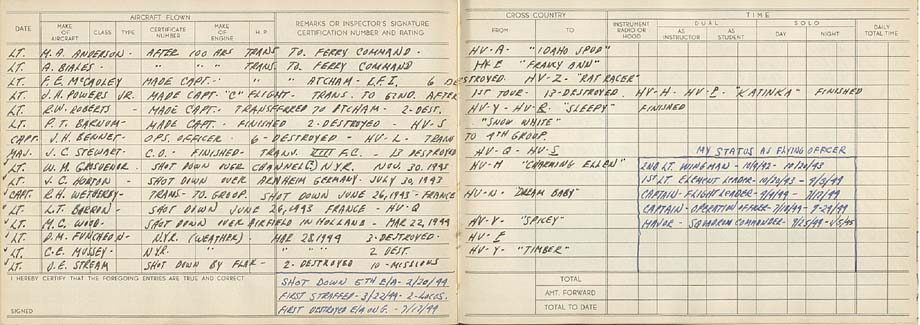 AIRCRAFT FLOWN
DATE MAKE OF AIRCRAFT CLASS TYPE CERTIFICATE NUMBER MAKE OF ENGINE H.P. REMARKS OR INSPECTOR'S SIGNATURE CERTIFICATION NUMBER AND RATING
LT. H.A. ANDERSON - AFTER 100 HRS TRANS. TO FERRY COMMAND -
LT. A. BIALES - " " " TRANS. TO FERRY COMMAND
LT. F.E. McCAULEY MADE CAPT. - " " ATCHAM - I.F.I. 6 DESTROYED.
LT. J.H. POWERS JR. MADE CAPT. "C" FLIGHT - TRANS. TO 62ND. AFTER
LT. R.W. ROBERTS - MADE CAPT. TRANSFERRED TO ATCHAM - 2-DEST.
LT. P.T. BARNUM - MADE CAPT. - FINISHED 2-DESTROYED - HV-S
CAPT. J.H. BENNET - OPS. OFFICER - 6-DESTROYED - HV-L - TRANS
MAJ. J.C. STEWART - C.O. - FINISHED - TRANS. VIII F.C. - 17 DESTROYED
LT. W.H. GROSVENOR - SHOT DOWN OVER CHANNEL(?) N.Y.R. NOV. 30. 1943
LT. J.C. HORTON - SHOT DOWN OVER ARNHEIM GERMANY - JULY 30, 1943
CAPT. R.H. WETHERBY - TRANS-TO. GROUP. SHOT DOWN JUNE 26, 1943 - FRANCE
LT. LT. BARRON - SHOT DOWN JUNE 26, 1943 FRANCE - HV-Q
LT. M.G. WOOD - SHOT DOWN OVER AIRFIELD IN HOLLAND - MAR 22, 1944
LT. D.M. FUNCHEON - N.Y.R. (WEATHER) - MAR 28, 1944 3-DESTROYED.
LT. C.E. MUSSEY - N.Y.R. " " " 2 DEST.
LT. D.E. STREAM SHOT DOWN BY FLAK - 2-DESTROYED 10-MISSIONS
I HEREBY CERTIFY THAT THE FOREGOING ENTRIES ARE TRUE AND CORRECT
SHOT DOWN 5TH E/A - 2/20/44
FIRST STRAFFED - 3/22/44 - 2-LOCOS.
FIRST DESTROYED E/A ON G. - 7/17/44
SIGNED
CROSS COUNTRY TIME
FROM TO INSTRUMENT RADIO OR HOOD DUAL AS INSTRUCTOR AS STUDENT SOLO DAY NIGHT DAILY TOTAL TIME
HV-A - "IDAHO SPUD"
HV-E "FRANKY ANN"
HV-Z - "RAT RACER"
1ST TOUR - 13-DESTROYED. HV-H - HV-P - "KATINKA" FINISHED
HV-Y - HV-R. "SLEEPY" FINISHED
"SNOW WHITE"
TO 4TH GROUP.
HV-Q - HV-S
HV-M "CHARMING ELLEN"
HV-N - "DREAM BABY"
HV-Y - "SPICEY"
HV-E
HV-Y - "TIMBER"
MY STATUS AS FLYING OFFICER
2ND LT. WINGMAN - 10/20/43
1ST LT. ELEMENT LEADER - 10/20/43 -
CAPTAIN - FLIGHT LEADER -
CAPTAIN - OPERATION OFFICER -
MAYOR - SQUADRON COMMANDER -
TOTAL
AMT. FORWARD
TOTAL TO DATE